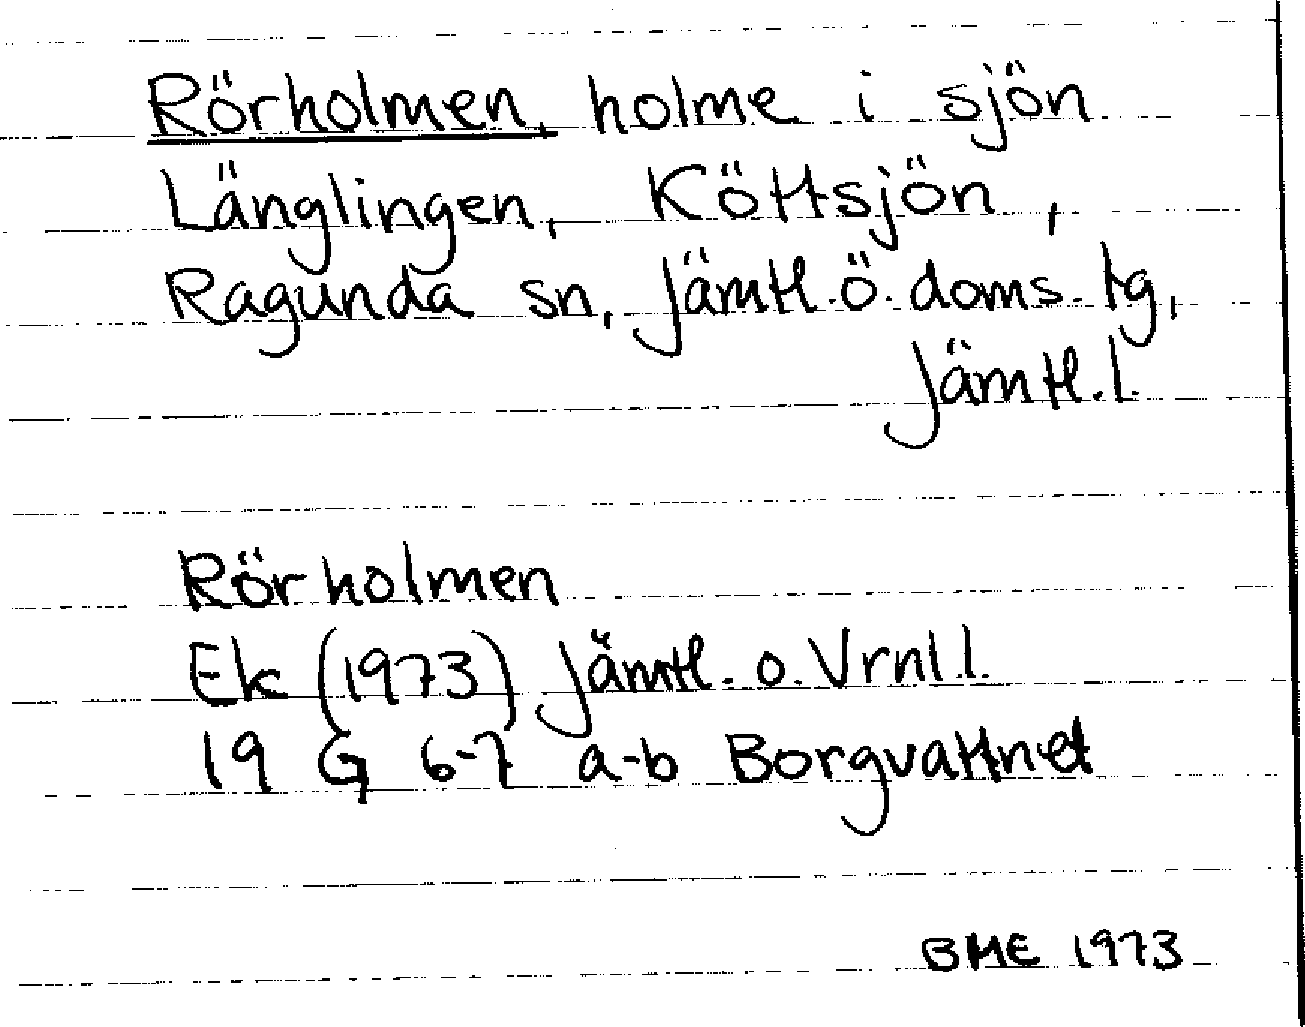 Rörholmen, holme i sjön
Länglingen, Köttsjön,
Ragunda sn, Jämtl.ö.doms.tg,
Jämtl.l.
Rörholmen
Ek (1973) Jämtl. o. Vrnl.l.
19 G 6-7 a-b Borgvattnet
BME 1973